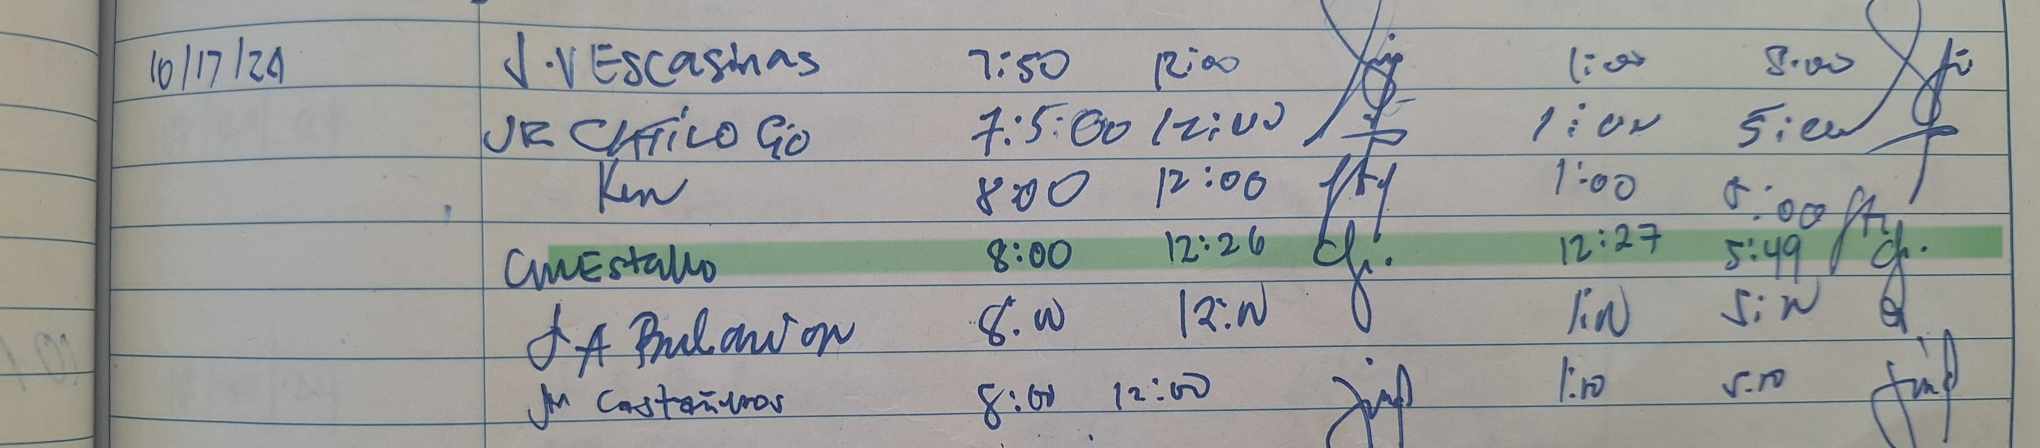 10/17/24 J.V Escasinas 7:50 12:00 1:00 5:00
JR CATÍLO GO 7:5:00 12:00 1:00 5:00
Ken 8:00 12:00 1:00 5:00
CMEstallo 8:00 12:26 12:27 5:49
JA Bulawon 8:00 12:00 1:00 5:00
JM Castañeros 8:00 12:00 1:00 5:00